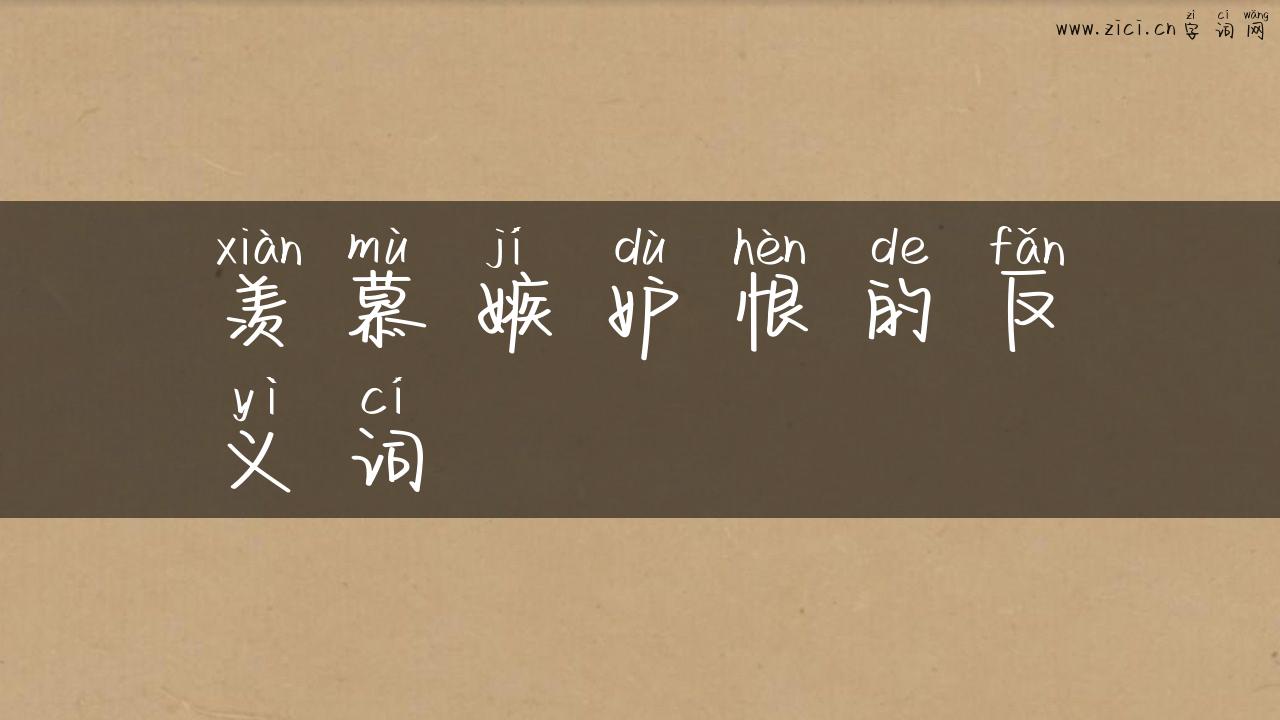 zì cí wǎng
www.zici.cn 字词网
xiàn mù jí dù hèn de fǎn
羡慕嫉妒恨的反
yì cí
义词